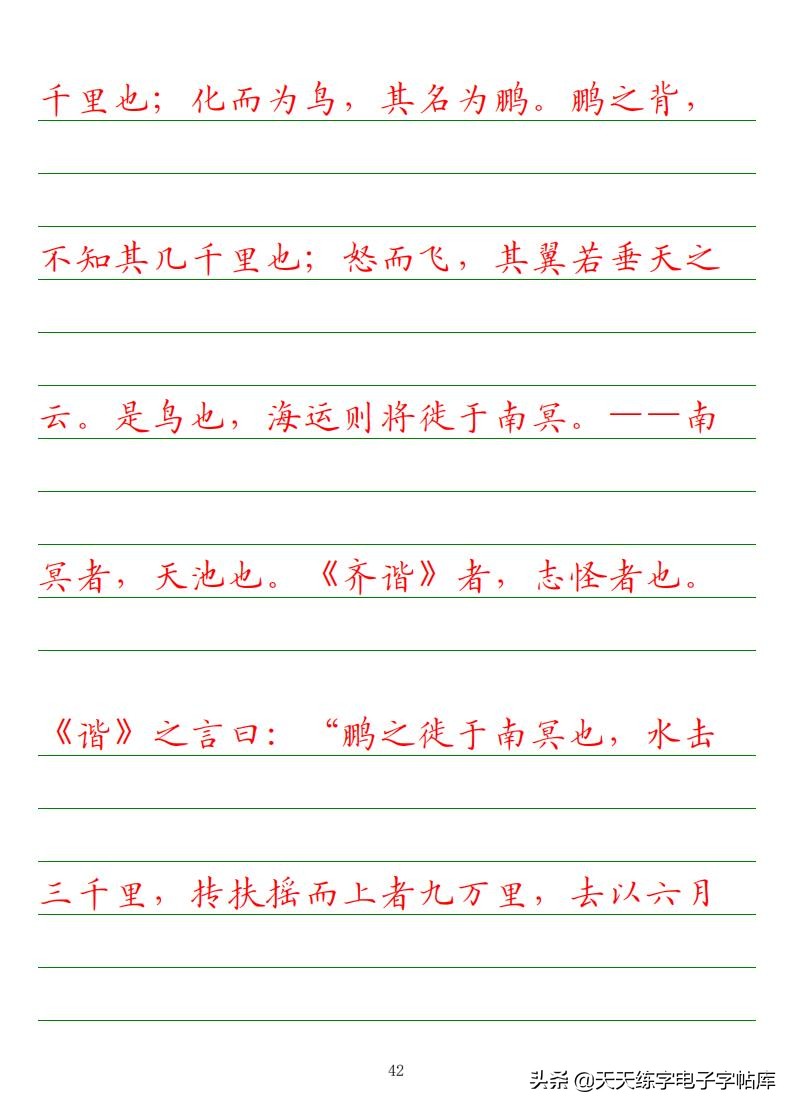 千里也；化而为鸟，其名为鹏。鹏之背，
不知其几千里也；怒而飞，其翼若垂天之
云。是鸟也，海运则将徙于南冥。——南
冥者，天池也。《齐谐》者，志怪者也。
《谐》之言曰：“鹏之徙于南冥也，水击
三千里，抟扶摇而上者九万里，去以六月
42
头条 @天天练字电子字帖库